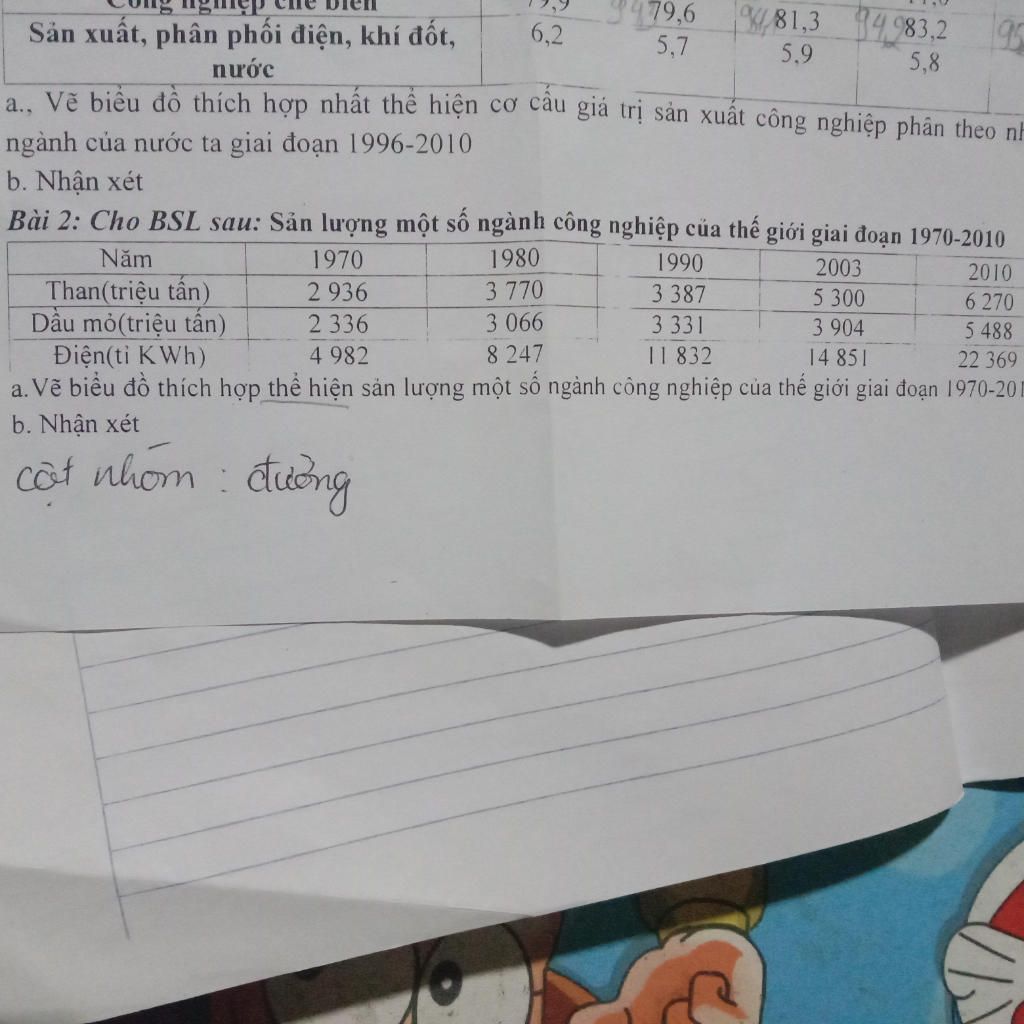 Công nghiệp chế biến 79,9 79,6 81,3 83,2
Sản xuất, phân phối điện, khí đốt, 6,2 5,7 5,9 5,8
nước
a., Vẽ biểu đồ thích hợp nhất thể hiện cơ cấu giá trị sản xuất công nghiệp phân theo
ngành của nước ta giai đoạn 1996-2010
b. Nhận xét
Bài 2: Cho BSL sau: Sản lượng một số ngành công nghiệp của thế giới giai đoạn 1970-2010
Năm 1970 1980 1990 2003 2010
Than(triệu tấn) 2 936 3 770 3 387 5 300 6 270
Dầu mỏ(triệu tấn) 2 336 3 066 3 331 3 904 5 488
Điện(tỉ KWh) 4 982 8 247 11 832 14 851 22 369
a.Vẽ biểu đồ thích hợp thể hiện sản lượng một số ngành công nghiệp của thế giới giai đoạn 1970-201
b. Nhận xét
cột nhóm : đường